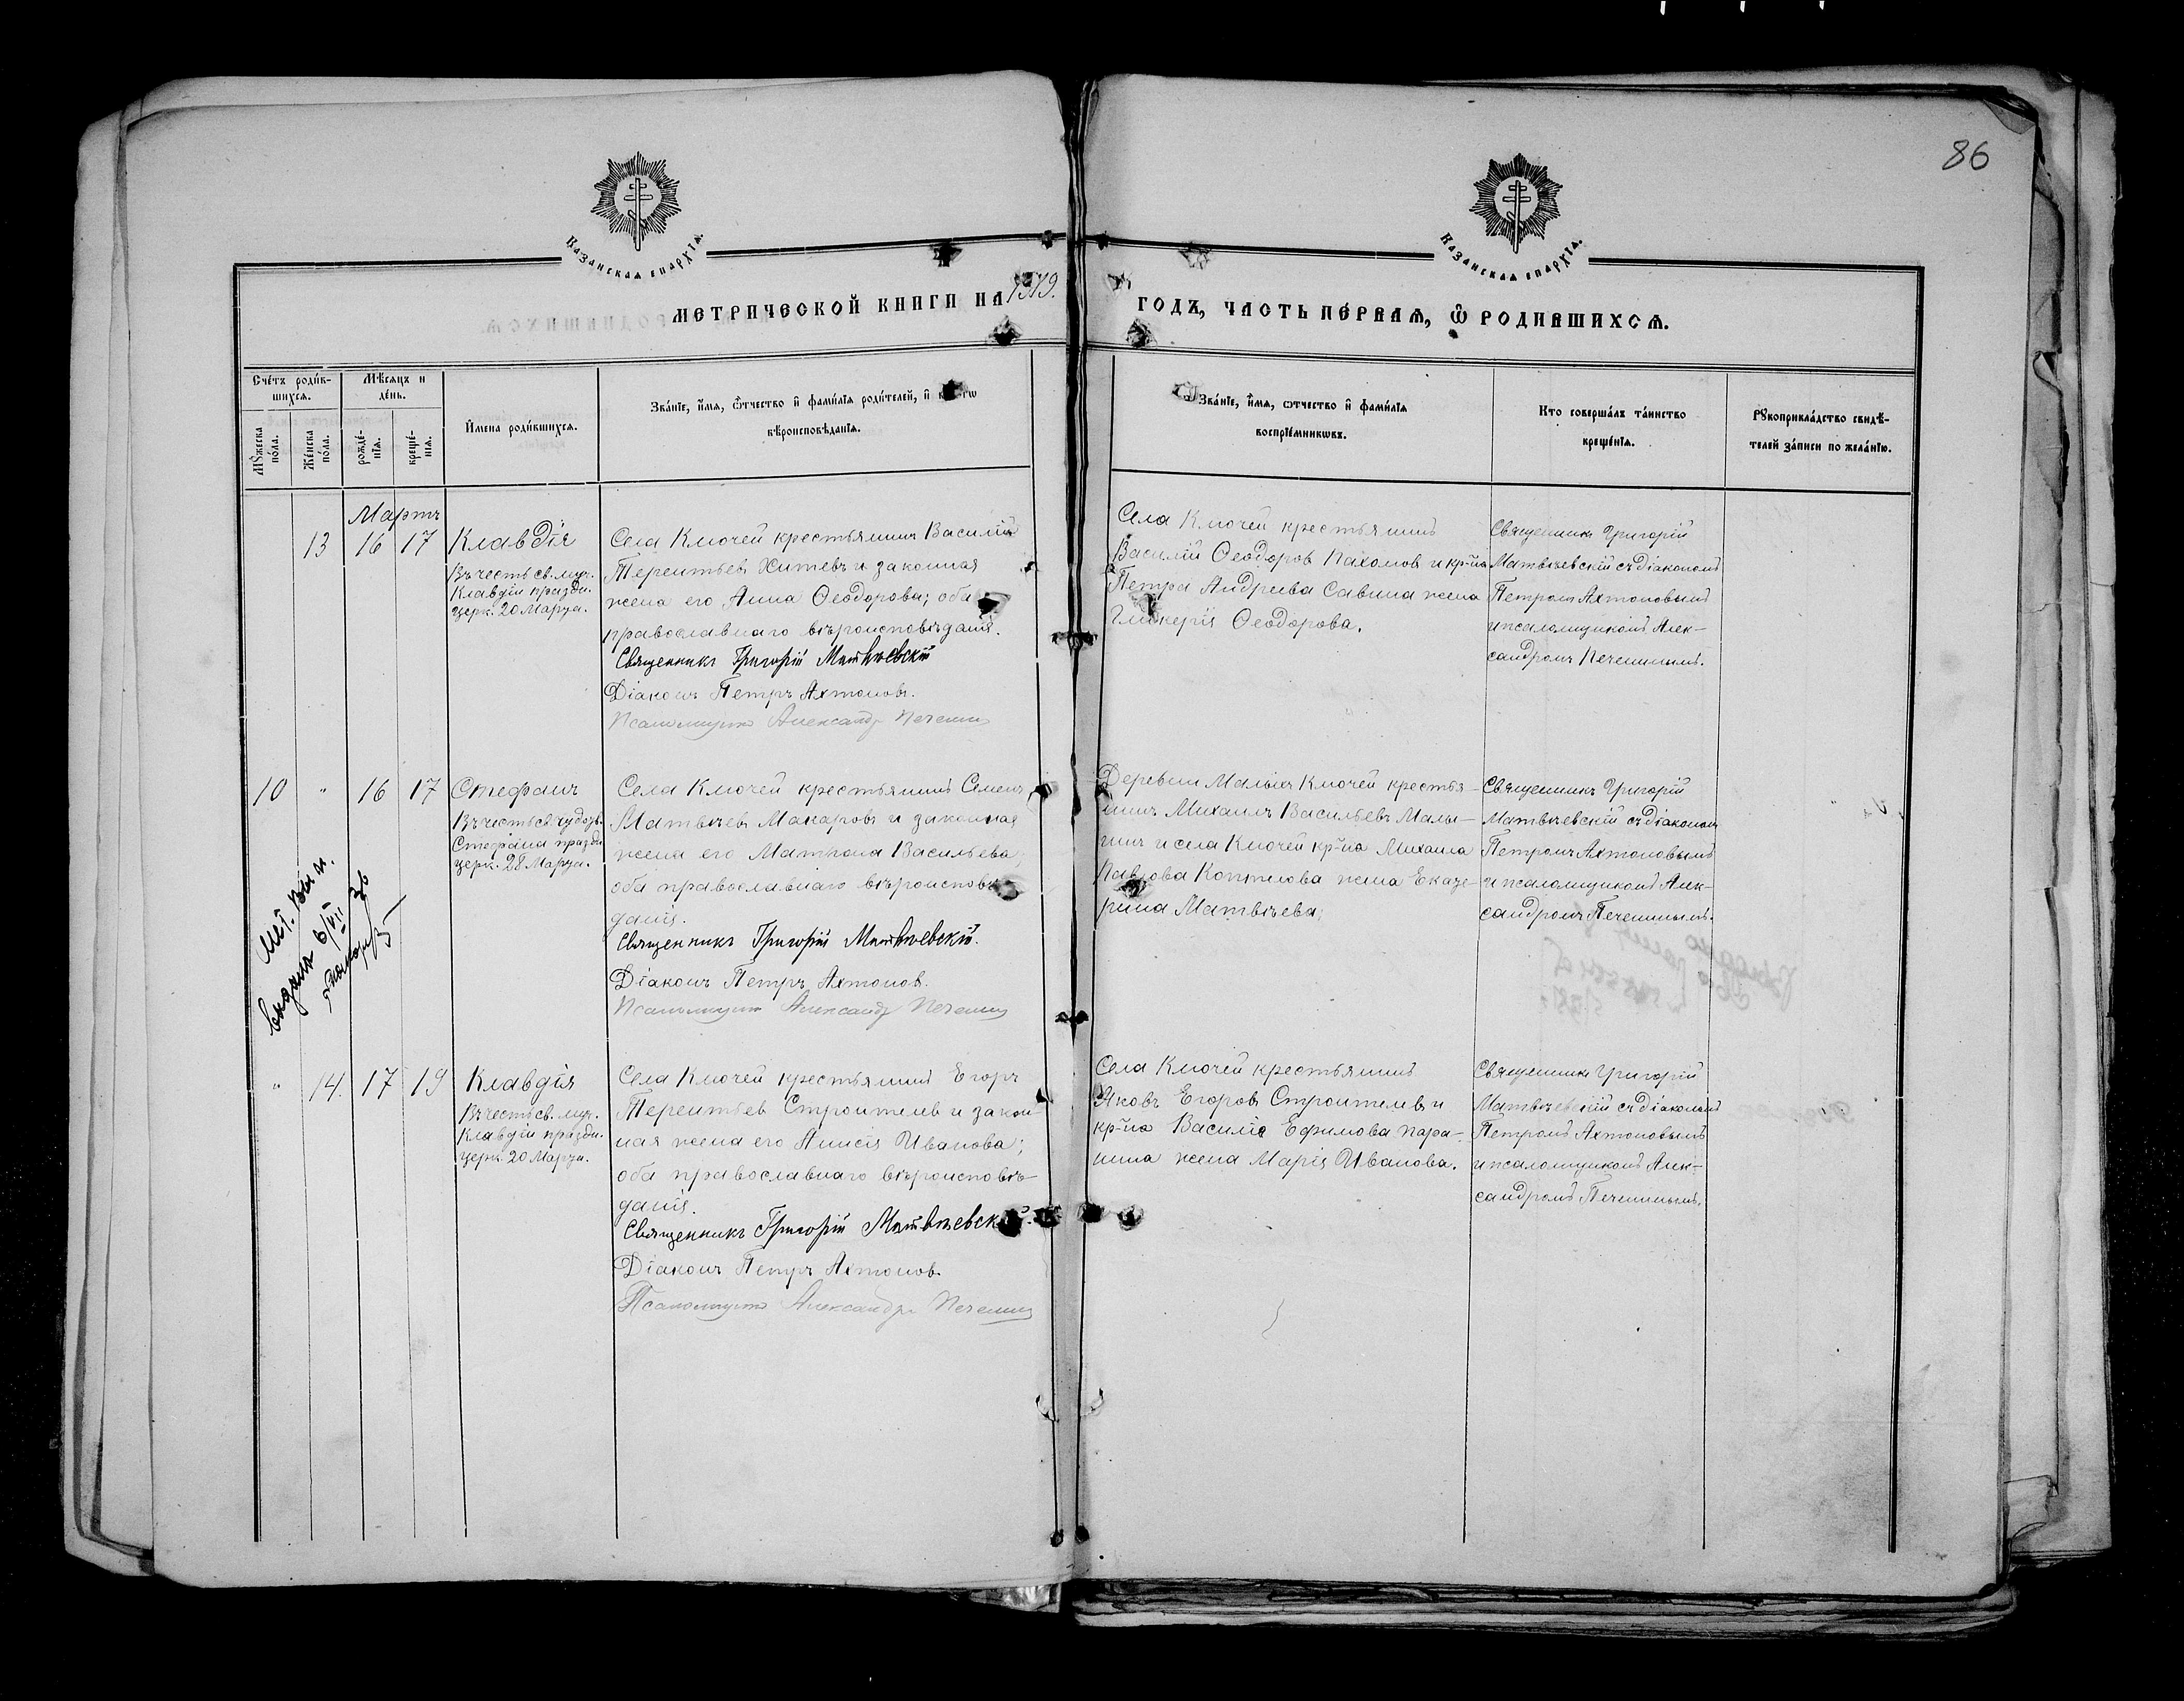 86
Казанская епархїѧ.
Казанская епархїѧ.
МЕТРИЧЕСКОЙ КНИГИ НА 1919.
ГОДЪ, ЧАСТЬ ПЕРВАЯ, Ѿ РОДИВШИХСѦ.
Сче́тъ роди́вшихсѧ.
Мѣ́сяцъ и де́нь.
Мꙋ́жеска по́ла.
Же́нска по́ла.
рожде́нїѧ.
креще́нїѧ.
И҆мена роди́вшихсѧ.
Зва́нїе, и҆́мѧ, ѻ҆́тчество и҆ фами́лїѧ роди́телей, и҆
вѣ́роисповѣ́данїѧ.
Зва́нїе, и҆́мѧ, ѻ҆тчество и҆ фами́лїѧ
воспрїе́мникѡвъ.
Кто соверша́лъ та́инство
креще́нїѧ.
Рꙋкоприкла́дство свидѣ́-
телей за́писи по жела́нїю.
Мартъ
13 16 17
Клавдія
Въ честь св. муч.
Клавдіи праздн.
церк. 20 Марта.
Села Ключей крестьянинъ Василій
Терентьевъ Хитевъ и законная
жена его Анна Ѳеодорова; оба
православнаго вѣроисповѣданія.
Священникъ Григорій Матвѣевскій
Діаконъ Петръ Ахтоновъ.
Псаломщикъ Александръ Печенинъ
Села Ключей крестьянинъ
Василій Ѳеодоров Пахомов и кр-на
Петра Андреева Савина жена
Гликерія Ѳеодорова.
Священникъ Григорій
Матвѣевскій съ діакономъ
Петромъ Ахтоновымъ
и псаломщикомъ Алек-
сандромъ Печенинымъ.
10 " 16 17
Стефанъ
Въ честь св. чудотв.
Стефана праздн.
церк. 28 Марта.
Села Ключей крестьянинъ Семенъ
Матвѣевъ Макаровъ и законная
жена его Матрона Васильева,
оба православнаго вѣроисповѣ-
данія.
Священникъ Григорій Матвѣевскій.
Діаконъ Петръ Ахтонов.
Псаломщикъ Александръ Печенинъ
Деревни Малыхъ Ключей крестья-
нинъ Михаилъ Васильевъ Малы-
гинъ и села Ключей кр-на Михаила
Павлова Коптелова жена Екате-
рина Матвѣева.
Священникъ Григорій
Матвѣевскій съ діакономъ
Петромъ Ахтоновымъ
и псаломщикомъ Алек-
сандромъ Печенинымъ.
Мет. вып.
выдана 6/VII
" 14. 17 19
Клавдія
Въ честь св. муч.
Клавдіи праздн.
церк. 20 Марта.
Села Ключей крестьянинъ Егоръ
Терентьев Строителев и закон-
ная жена его Анисія Иванова;
оба православнаго вѣроисповѣ-
данія.
Священникъ Григорій Матвѣевскій.
Діаконъ Петръ Ахтонов.
Псаломщикъ Александръ Печенинъ
Села Ключей крестьянинъ
Яковъ Егоровъ Строителевъ и
кр-на Василія Ефимова Пара-
нина жена Марія Иванова.
Священникъ Григорій
Матвѣевскій съ діакономъ
Петромъ Ахтоновымъ
и псаломщикомъ Алек-
сандромъ Печенинымъ.